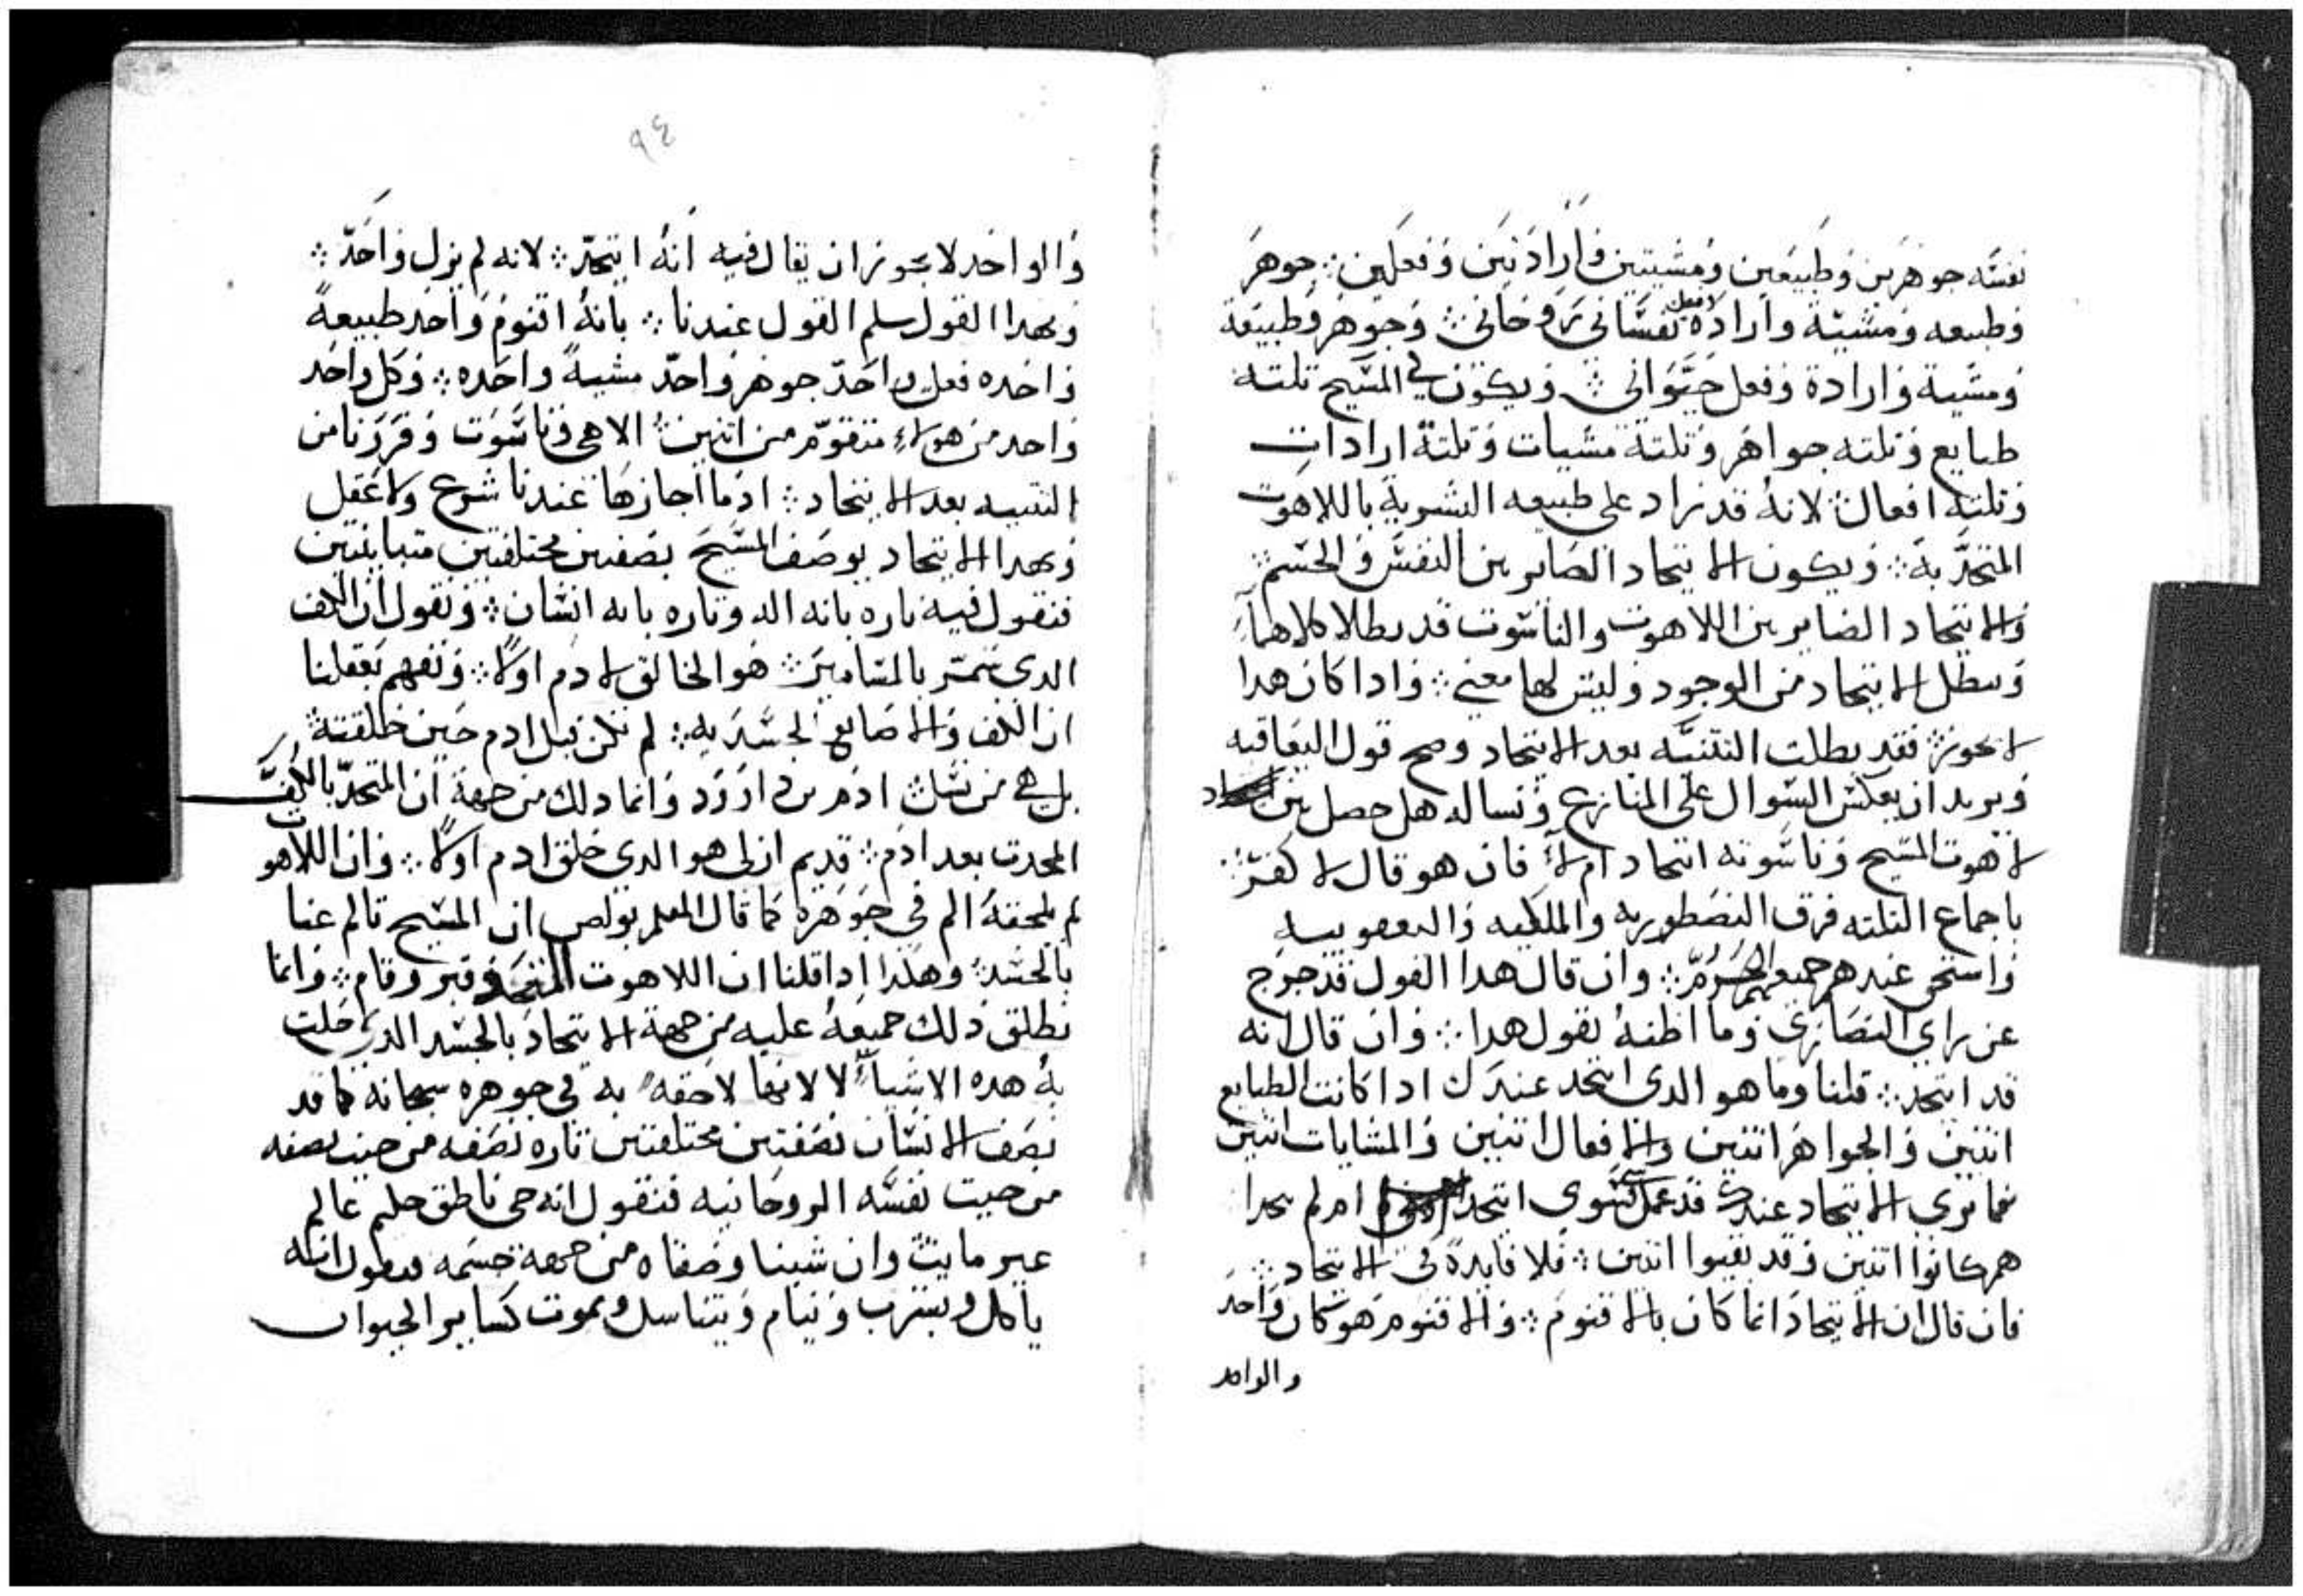 نفسه جوهرين وطبيعتين ومشيتين وارادتين وفعلين ⁘ جوهر
وطبيعه ومشيئة وارادة وفعل نفساني روحاني ⁘ وجوهر وطبيعة
ومشية وارادة وفعل حيواني ⁘ ويكون في المسيح تلتة
طبايع وتلته جواهر وتلتة مشيات وتلتة ارادات
وتلته افعال ⁘ لانه قد زاد على طبيعه البشرية باللاهوت
المتحد به ⁘ ويكون الاتحاد الصاير بين النفس والجسم ⁘
والاتحاد الصاير بين اللاهوت والناسوت قد بطلا كلاهما
وبطل الاتحاد من الوجود وليس لها معنى ⁘ واذا كان هدا
لا يجوز ⁘ فقد بطلت التتنيه بعد الاتحاد وصح قول اليعاقبه
ونريد ان نعكس السوال على المنازع ونساله هل حصل بين
لاهوت المسيح وناسوته اتحاد ام لا فان هو قال لا كفر ⁘
باجماع التلته فرق النصطوريه والملكيه واليعقوبيه
واستحق عندهم جميعهم الحرم ⁘ وان قال هدا القول فقد خرج
عن راي النصارى وما اظنه يقول هدا ⁘ وان قال انه
قد اتحد ⁘ قلنا وما هو الدى اتحد عندك ادا كانت الطبايع
اتنين والجواهر اتنين والافعال اتنين والمشايات اتنين
فما نرى الاتحاد عندك قد عمل شى سوى اتحد ام لم يتحدا
هم كانوا اتنين وقد بقيوا اتنين ⁘ فلا فايدة في الاتحاد ⁘
فان قال ان الاتحاد انما كان بالاقنوم ⁘ والاقنوم هو كان واحد
والواحد
٩٤
والواحد لا يجوز ان يقال فيه انه اتحد ⁘ لانه لم يزل واحد ⁘
وبهدا القول سلم القول عندنا ⁘ بانه اقنوم واحد طبيعة
واحده فعل واحد جوهر واحد مشية واحده ⁘ وكل واحد
واحد من هولاء متقوم من اتنين ⁘ الاهي وناسوت وقررنا من
التتنيه بعد الاتحاد ⁘ اد ما اجازها عندنا شرع ولا عقل
وبهدا الاتحاد يوصف المسيح بصفتين مختلفتين متباينتين
فنقول فيه تاره بانه اله وتاره بانه انسان ⁘ ونقول ان الكف
الدى تسمر بالمسامير ⁘ هو الخالق لادم اولا ⁘ ونفهم بعقلنا
ان الكف والاصابع الجسديه ⁘ لم تكن قبل ادم حين خلقته
بل هي من نسل ادم من داوود وانما دلك من جهة ان المتحد بالكف
المحدت بعد ادم ⁘ قديم ازلى هو الدى خلق ادم اولا ⁘ وان اللاهوت
لم يلحقه الم في جوهره كما قال المعلم بولص ان المسيح تالم عنا
بالجسد ⁘ وهكذا اذا قلنا ان اللاهوت المتحد وقبر وقام ⁘ وانما
نطلق ذلك جميعه عليه من جهة الاتحاد بالجسد الدى حلت
به هده الاشياء لا لانها لاحقه به في جوهره سبحانه كما قد
نصف الانسان بصفتين مختلفتين تاره نصفه من حيت نصفه
من حيت نفسه الروحانيه فنقول انه حى ناطق حليم عالم
غير مايت وان شينا وصفناه من جهة جسمه فنقول انه
ياكل ويشرب وينام ويتناسل ويموت كساير الحيوان